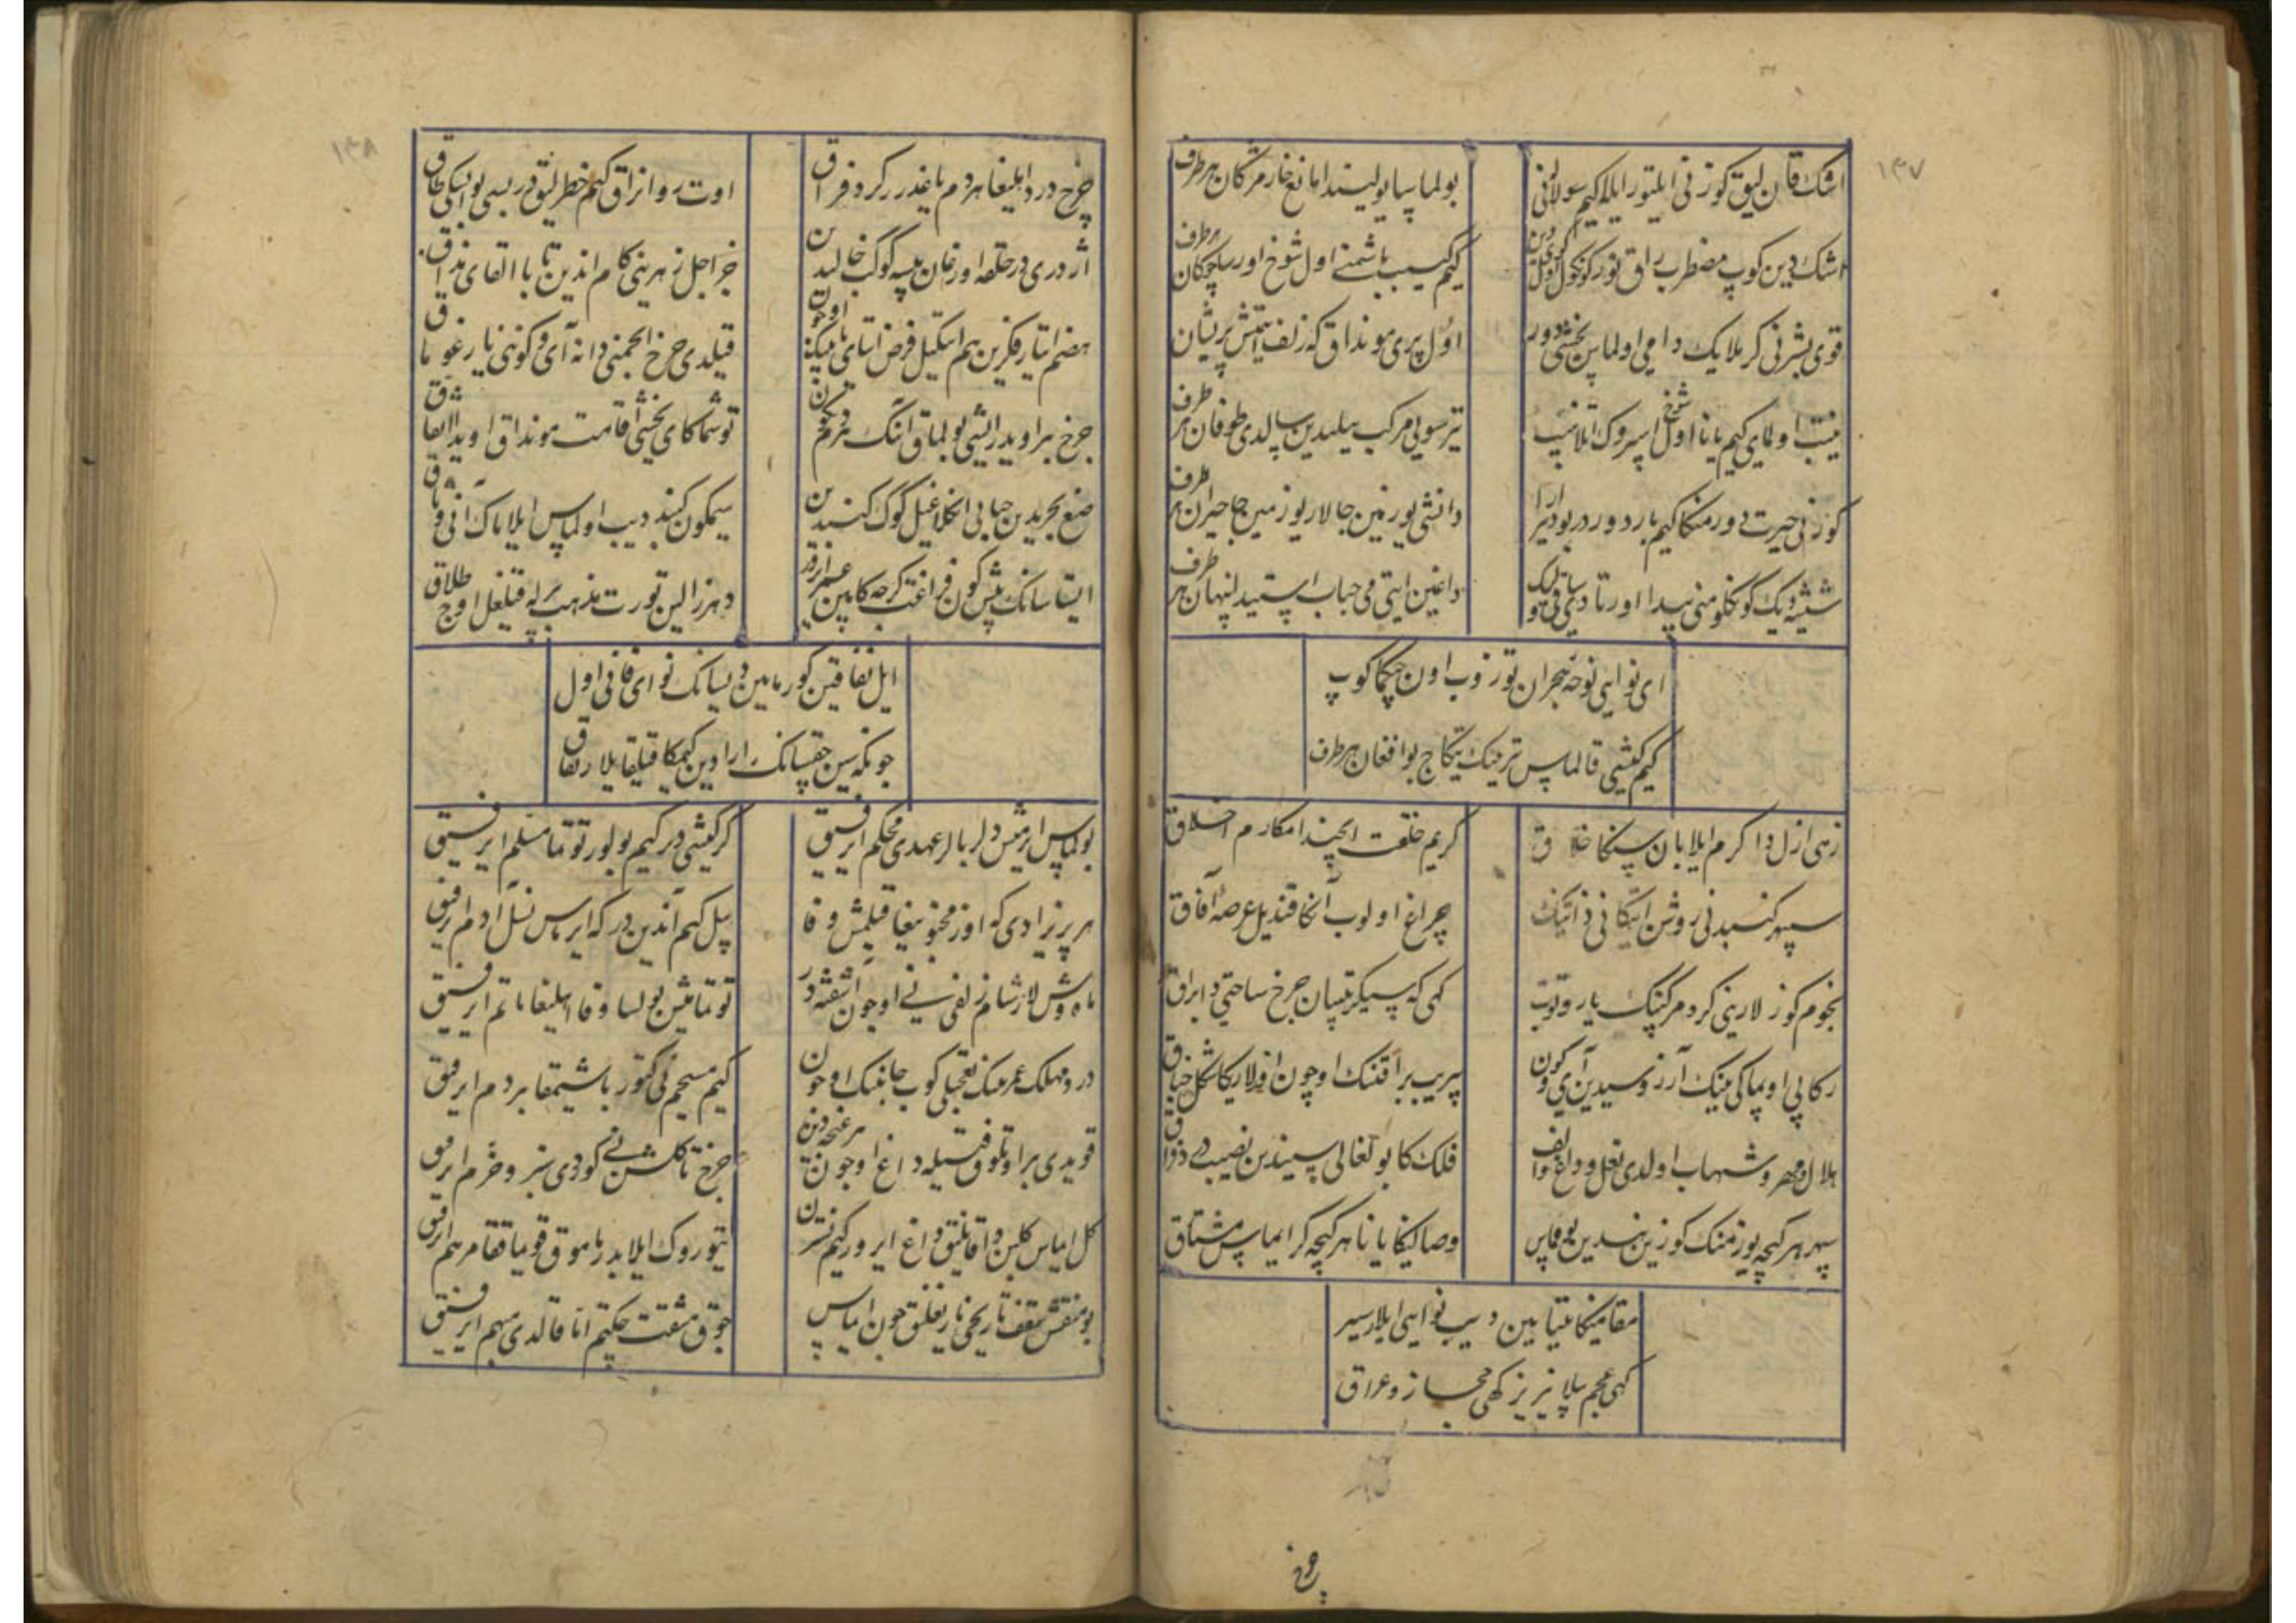 ۱۳۷
اشک قان لیق کوزنی ایلتور ایله کیم سولارنی
بولماسا یولیندا مانع خار مژگان هر طرف
اشک دین کوب مضطرب راق تور کونکول
کیم کیسیب باشمنے اول شوخ اور ساچقان هر طرف
قوی بشرنی کر ملایک دامی اولماس یخشی دور
اول پری مونداق که زلف ایتمش پریشان
مینیب اولمای کیم یانا اول شوخ اسروک آتلانیب
تیر سویی مرکب سیلیدین سالدی طوفان هر طرف
کوزنی حیرت دور منکا کیم بار دور بو دیر ارا
دانشی یوز مین جالار یوز مین جا حیران هر طرف
شیشه دیک کونکلومنی پیدا اورتادی
داغین ایتی می حباب ایستید پنهان هر طرف
ای نوایی نوحهٔ هجران توزوب اون چیکما کوپ
کیم کیشی قالماس تریک یتکاج بو افغان هر طرف
زهی ازل دا کرم ایلابان سنکا خلاق
کریم خلقت ایچیندا مکارم اخلاق
سپهر کنبدنی روشن ایتکانی ذاتینک
چراغ اولوب آنکا قندیل عرصهٔ آفاق
نجوم کوزلارینی کرد مرکبینک یاروتوب
کهی که سیکرتیبسان چرخ ساحتی دا براق
رکابی اوپماکی نینک آرزوسیدین آی و کون
یریب براقنک اوچون افلاکا شکل خناق
هلال و مهر و شهاب اولدی نعل و داغ و الف
فلک کا بولغالی سیندین نصیب درد و فراق
سپهر هر کیچه یوز مینک کوزین نیدین یومماس
وصالینکا یانا هر کیچه کر ایماس مشتاق
مقامینکا یتیابین دیب نوایی ایلار سیر
کهی عجم بیلا نیریز کهی حجاز و عراق
چرخ
۱۳۸
چرخ درد اهلیغا هر دم یاغدرر کرد فراق
اوت روانراق کیم خطرلیق دور بسی بو ایسکی طاق
اژدری در حلقه اورغان بیسه کوک خالیدین
جز اجل زهرینی کام اندین تابا القای مذاق
هضم ایتار فکرین هم ایتکیل فرض ایتای نانینک اوچون
قیلدی چرخ انجمنی دانه آی و کوننی یارغوچاق
چرخ بر اویدر ایشی بولماق آنک هر دم نکون
توشماکای یخشی اقامت مونداق اویدا اتفاق
صنع بحریدین حبابی انکلاغیل کوک کنبدین
سیمکون کنبد دیب اولماس ایلاماک آنی وثاق
ایستاسانک بیش کون فراغت کرچه کابین عمر ایرور
دهر زالین تورت مذهب بیرله قیلغیل اوچ طلاق
ایل نفاقین کورمایین دیسانک نوای فانی اول
چونکه سین چقسانک ارادین کیمکا قیلغایلار نفاق
بولماس ایرمیش دلربالر عهدی محکم ای رفیق
کر کیشی در کیم بولور توتما مسلم ای رفیق
هر پریزادی که اوز مجنونیغا قیلمش وفا
بیل کیم آندین در که ایرماس نسل آدم ای رفیق
ماه وش لار شام زلفی نی اوچون آشفته در
توتمامیش بولسا وفا اهلیغا ماتم ای رفیق
درد مهلک عمرینک تعجیلی کوب جانینک اوچون
کیم مسیحیم نی کتور باشیمغا بر دم ای رفیق
قویدی بر اوتلوق فتیله داغ اوچون هر غنچه دین
چرخ تا کلشن نی کوردی سبز و خرم ای رفیق
کل ایماس کلبن دا قانلیق داغ ایرور کیم نسترن
یتوروک ایلابدر مامق قویماققا مرهم ای رفیق
بو منقش سقف تاریخی ناریغلیق چون ایماس
چوق مشقت چکتیم آنا قالدی مبهم ای رفیق